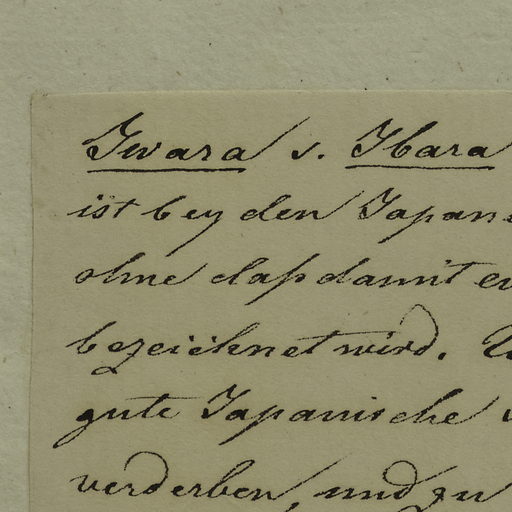 Iwara v. Ibara
ist bey den Japan
ohne daß damit
bezeichnet wird.
gute Japanische
verderben, und zu